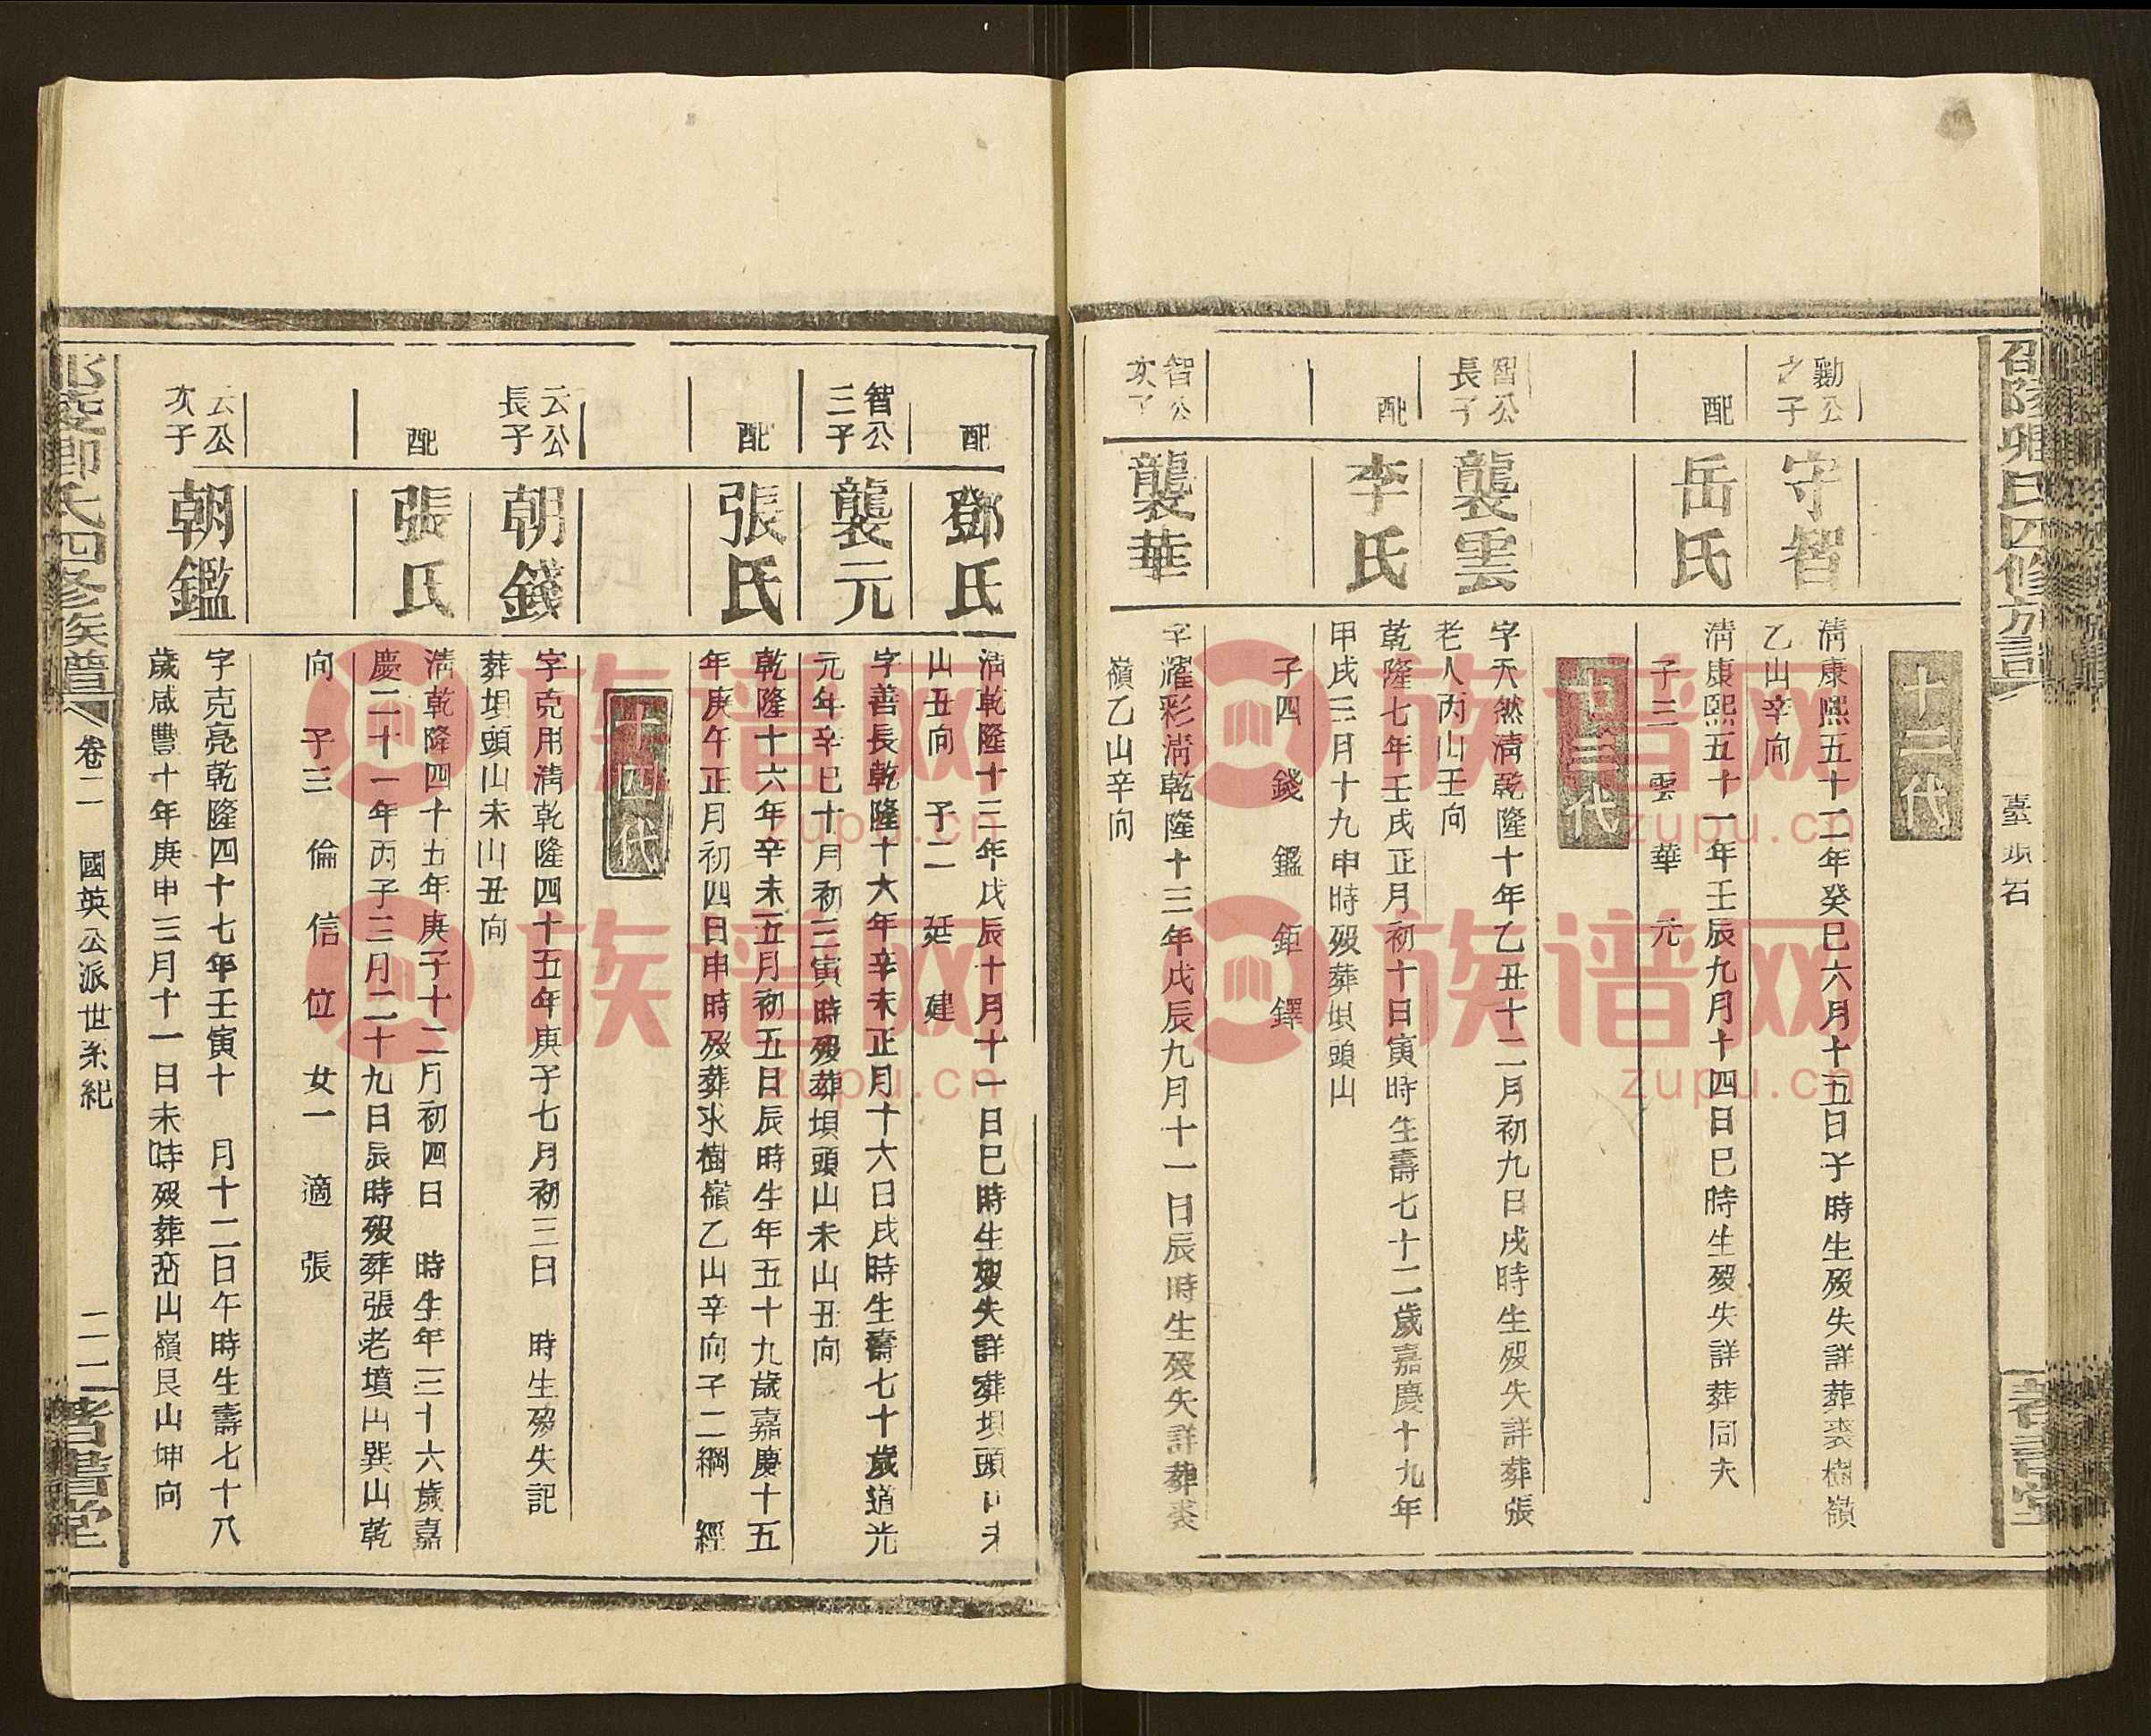 邵陵鄉氏四修族譜
臺頭岩
著書堂
十二代
勷公之子
守智
清康熙五十二年癸巳六月十五日子時生歿失詳葬裘樹嶺
乙山辛向
配
岳氏
清康熙五十一年壬辰九月十四日巳時生歿失詳葬同夫
子三 雲 華 元
十三代
智公長子
襲雲
字天然清乾隆十年乙丑十二月初九日戌時生歿失詳葬張
老人丙山壬向
配
李氏
乾隆七年壬戌正月初十日寅時生壽七十二歲嘉慶十九年
甲戌三月十九申時歿葬垻頭山
子四 錢 鑑 鉅 鐸
智公次子
襲華
字耀彩清乾隆十三年戊辰九月十一日辰時生歿失詳葬裘
嶺乙山辛向
配
鄧氏
清乾隆十三年戊辰十月十一日巳時生歿失詳葬垻頭山未
山丑向 子二 廷 建
智公三子
襲元
字善長乾隆十六年辛未正月十六日戌時生壽七十歲道光
元年辛巳十月初三寅時歿葬垻頭山未山丑向
配
張氏
乾隆十六年辛未五月初五日辰時生年五十九歲嘉慶十五
年庚午正月初四日申時歿葬求樹嶺乙山辛向子二綱 經
十四代
云公長子
朝錢
字克用清乾隆四十五年庚子七月初三日 時生歿失記
葬垻頭山未山丑向
配
張氏
清乾隆四十五年庚子十二月初四日 時生年三十六歲嘉
慶二十一年丙子三月二十九日辰時歿葬張老墳山巽山乾
向 子三 倫 信 位 女一 適 張
云公次子
朝鑑
字克亮乾隆四十七年壬寅十 月十二日午時生壽七十八
歲咸豐十年庚申三月十一日未時歿葬峦山嶺艮山坤向
氏四修族譜
卷二 國英公派世系紀
二二
著書堂
族谱网
zupu.cn
族谱网
zupu.cn
族谱网
zupu.cn
族谱网
zupu.cn